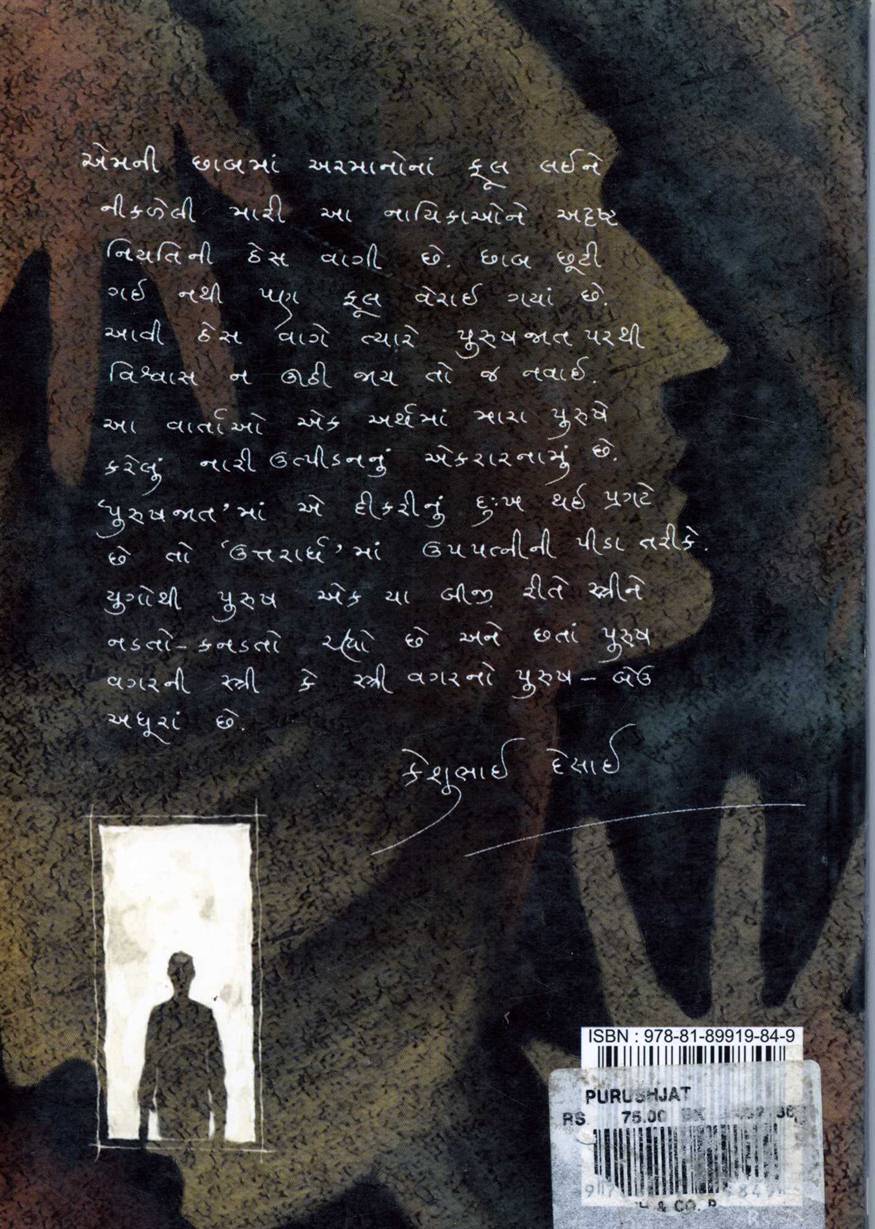 એમની છાબમાં અરમાનોનાં ફૂલ લઈને
નીકળેલી મારી આ નાયિકાઓને અદૃષ્ટ
નિયતિની ઠેસ વાગી છે. છાબ છૂટી
ગઈ નથી પણ ફૂલ વેરાઈ ગયાં છે.
આવી ઠેસ વાગે ત્યારે પુરુષજાત પરથી
વિશ્વાસ ન ઊઠી જાય તો જ નવાઈ.
આ વાર્તાઓ એક અર્થમાં મારા પુરુષે
કરેલું નારી ઉત્પીડનનું એકરારનામું છે.
'પુરુષજાત'માં એ દીકરીનું દુઃખ થઈ પ્રગટે
છે તો 'ઉત્તરાર્ધ'માં ઉપપત્નીની પીડા તરીકે.
યુગોથી પુરુષ એક યા બીજી રીતે સ્ત્રીને
નડતો-કનડતો રહ્યો છે અને છતાં પુરુષ
વગરની સ્ત્રી કે સ્ત્રી વગરનો પુરુષ - બેઉ
અધૂરાં છે.
કેશુભાઈ દેસાઈ
ISBN : 978-81-89919-84-9
PURUSHJAT
RS 75.00
& CO.